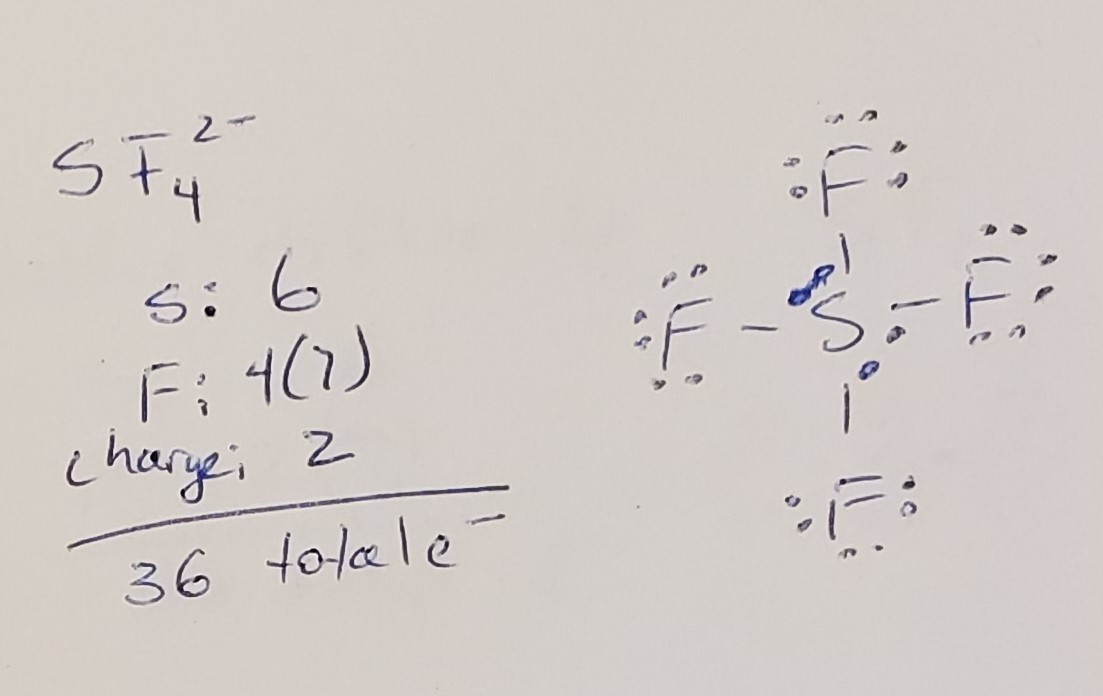 SF₄²⁻
S: 6
F: 4(7)
charge: 2
36 total e⁻
F
F - S - F
F